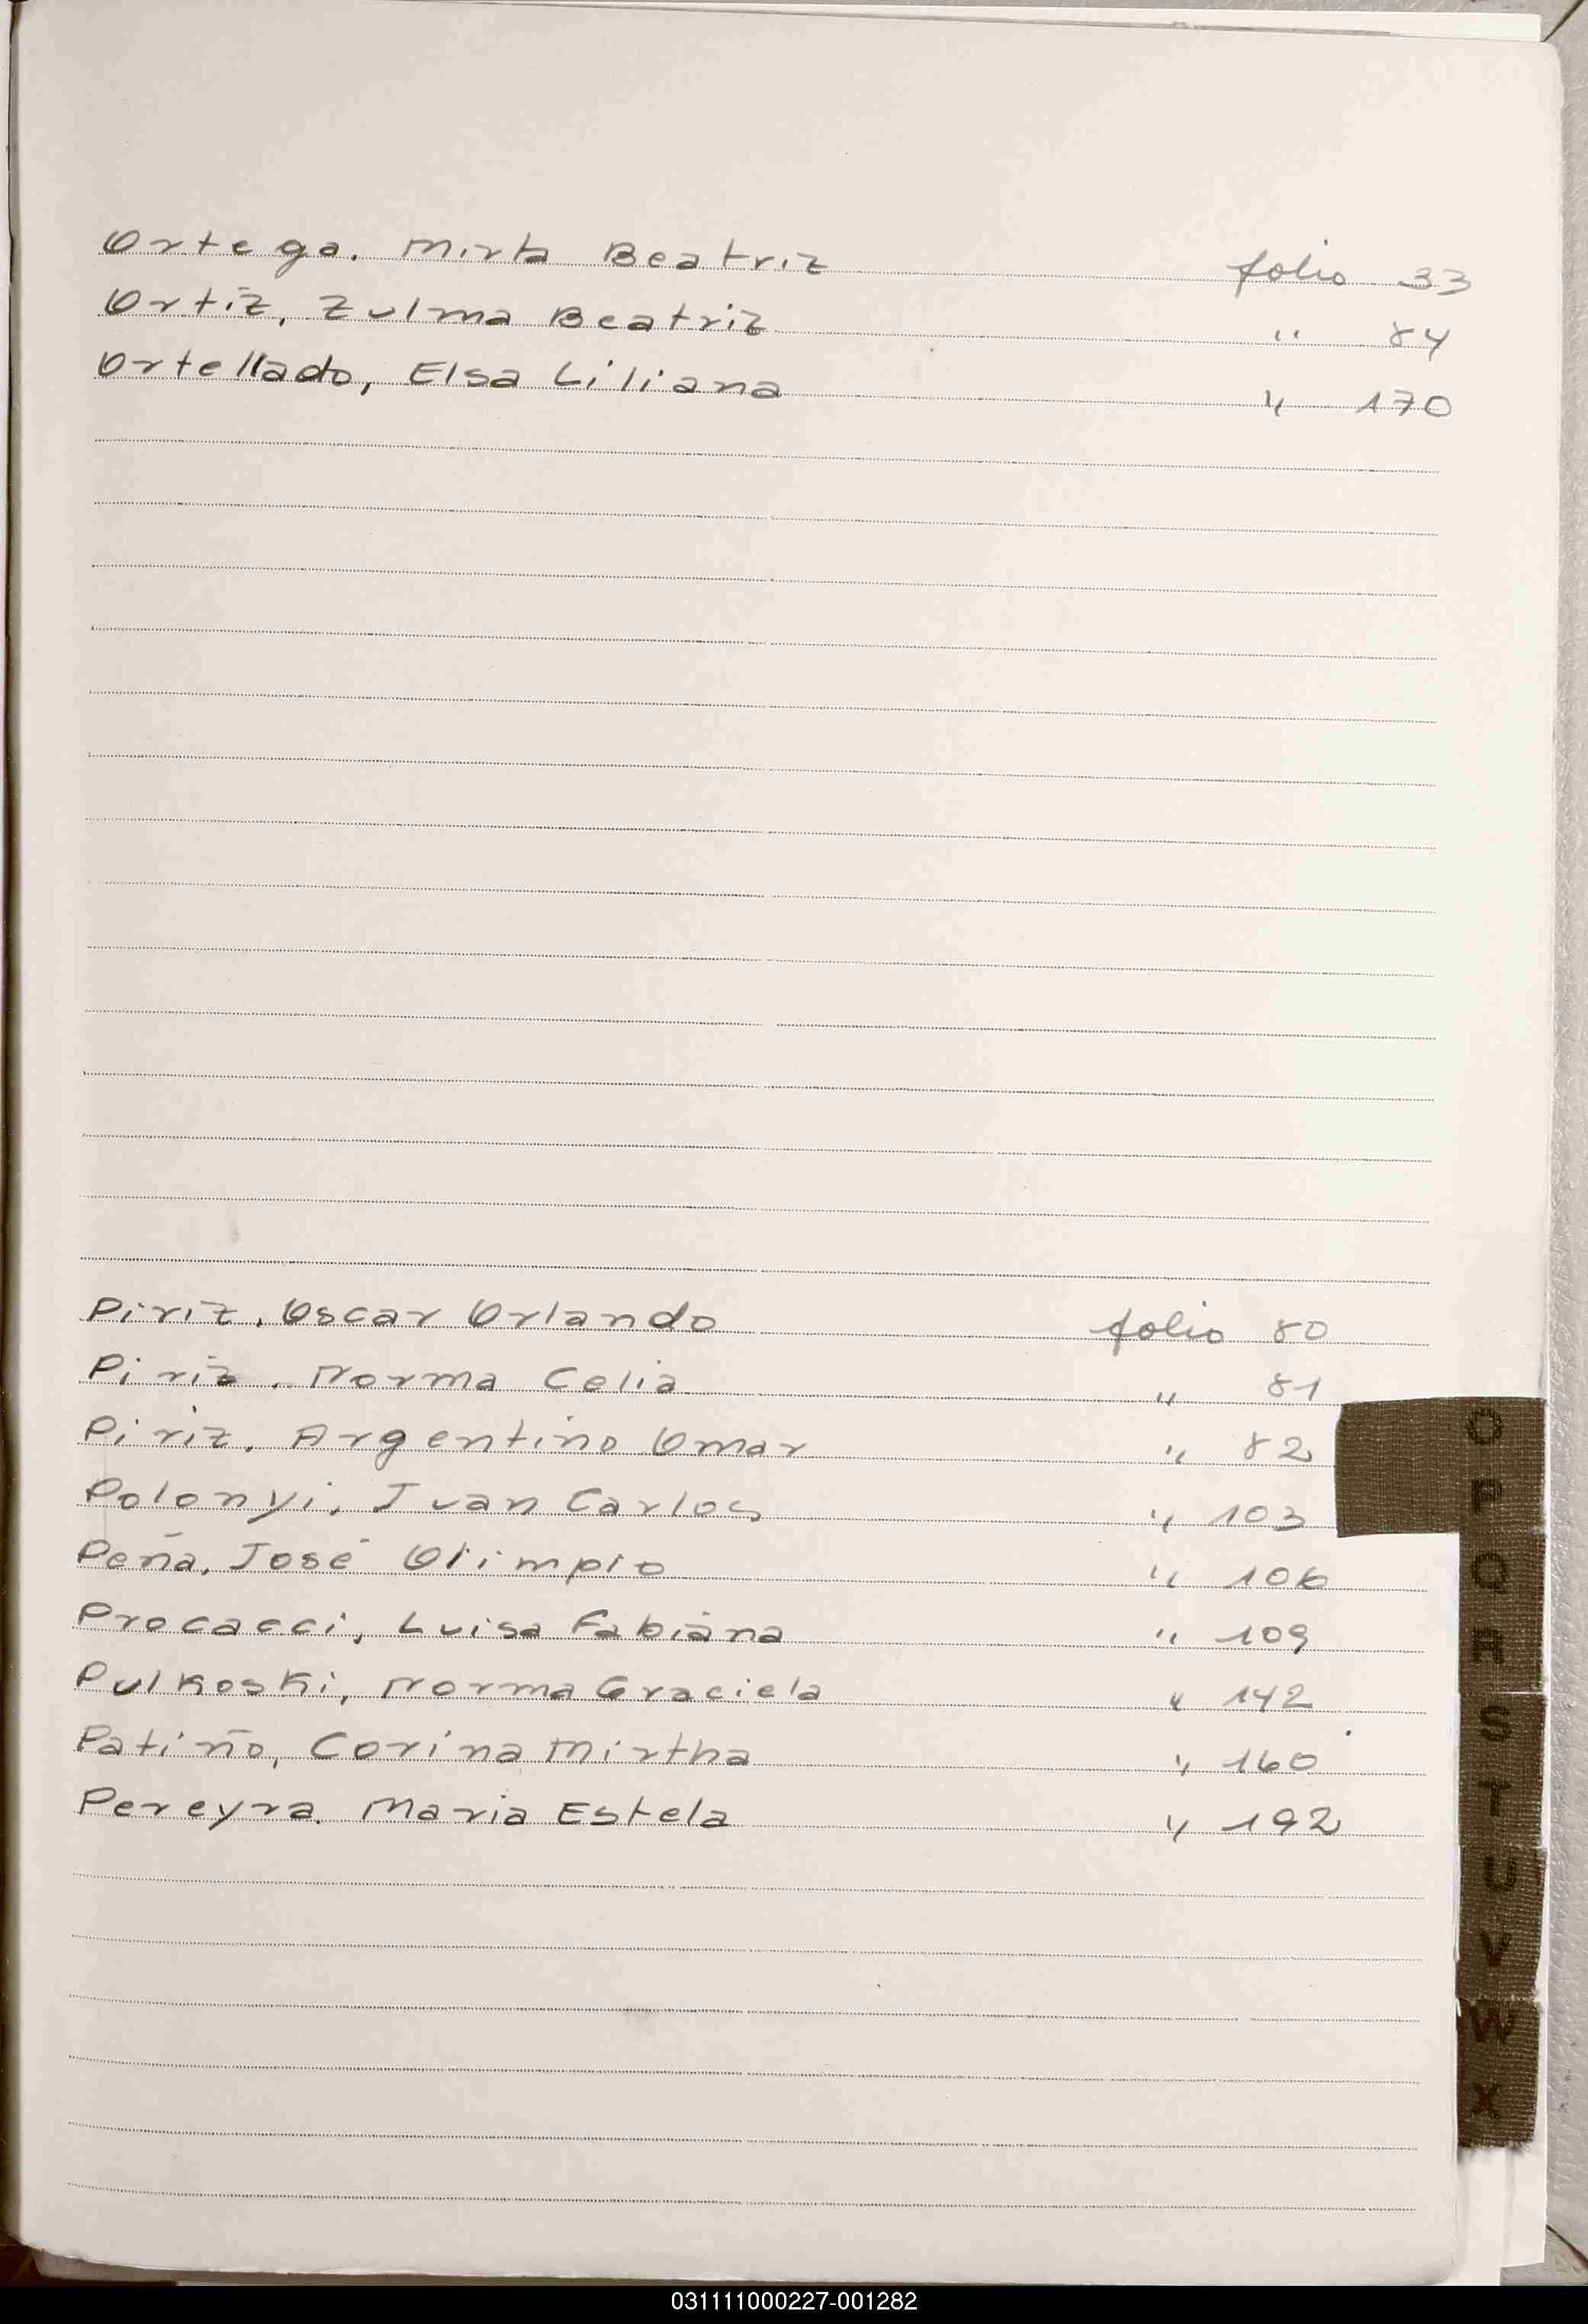 Ortega. Mirta Beatriz folio 33
Ortiz, Zulma Beatriz " 84
Ortellado, Elsa Liliana " 170
Piriz, Oscar Orlando folio 80
Piriz. Norma Celia " 81
Piriz. Argentino Omar " 82
Polonyi, Juan Carlos " 103
Peña, José Olimpio " 106
Procacci, Luisa Fabiana " 109
Pulkoski, Norma Graciela " 142
Patiño, Corina Mirtha " 160
Pereyra. Maria Estela " 192
O
P
Q
R
S
T
U
V
W
X
031111000227-001282